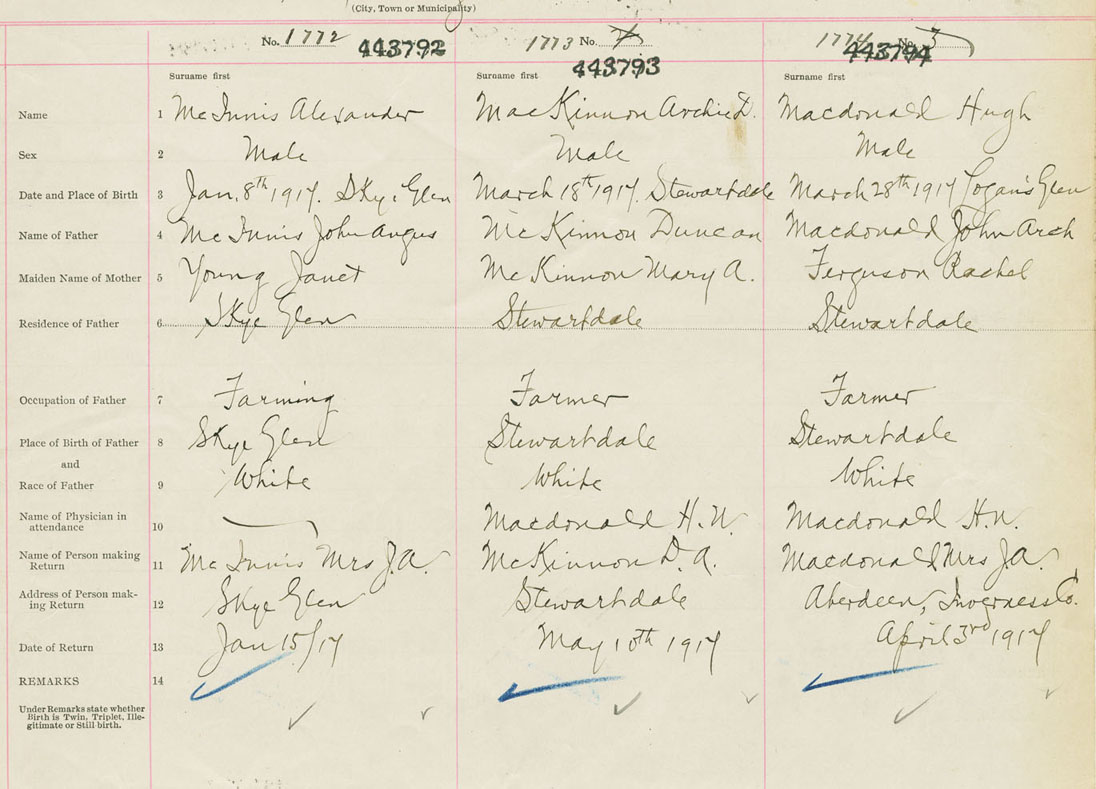 (City, Town or Municipality)
No. 1772 443792 1773 No. 443793 1774 No. 3 443794
Surname first Surname first Surname first
Name 1 McInnis Alexander MacKinnon Archie D. Macdonald Hugh
Sex 2 Male Male Male
Date and Place of Birth 3 Jan. 8th 1917. Skye Glen March 18th 1917. Stewartdale March 28th 1917 Logan's Glen
Name of Father 4 McInnis John Angus McKinnon Duncan Macdonald John Arch
Maiden Name of Mother 5 Young Janet McKinnon Mary A. Ferguson Rachel
Residence of Father 6 Skye Glen Stewartdale Stewartdale
Occupation of Father 7 Farming Farmer Farmer
Place of Birth of Father 8 Skye Glen Stewartdale Stewartdale
and
Race of Father 9 White White White
Name of Physician in
attendance 10 Macdonald H. N. Macdonald H. N.
Name of Person making
Return 11 McInnis Mrs J.A. McKinnon D. A. Macdonald Mrs J.A.
Address of Person mak-
ing Return 12 Skye Glen Stewartdale Aberdeen, Inverness Co.
Date of Return 13 Jan 15/17 May 10th 1917 April 3rd 1917
REMARKS 14
Under Remarks state whether
Birth is Twin, Triplet, Ille-
gitimate or Still birth.